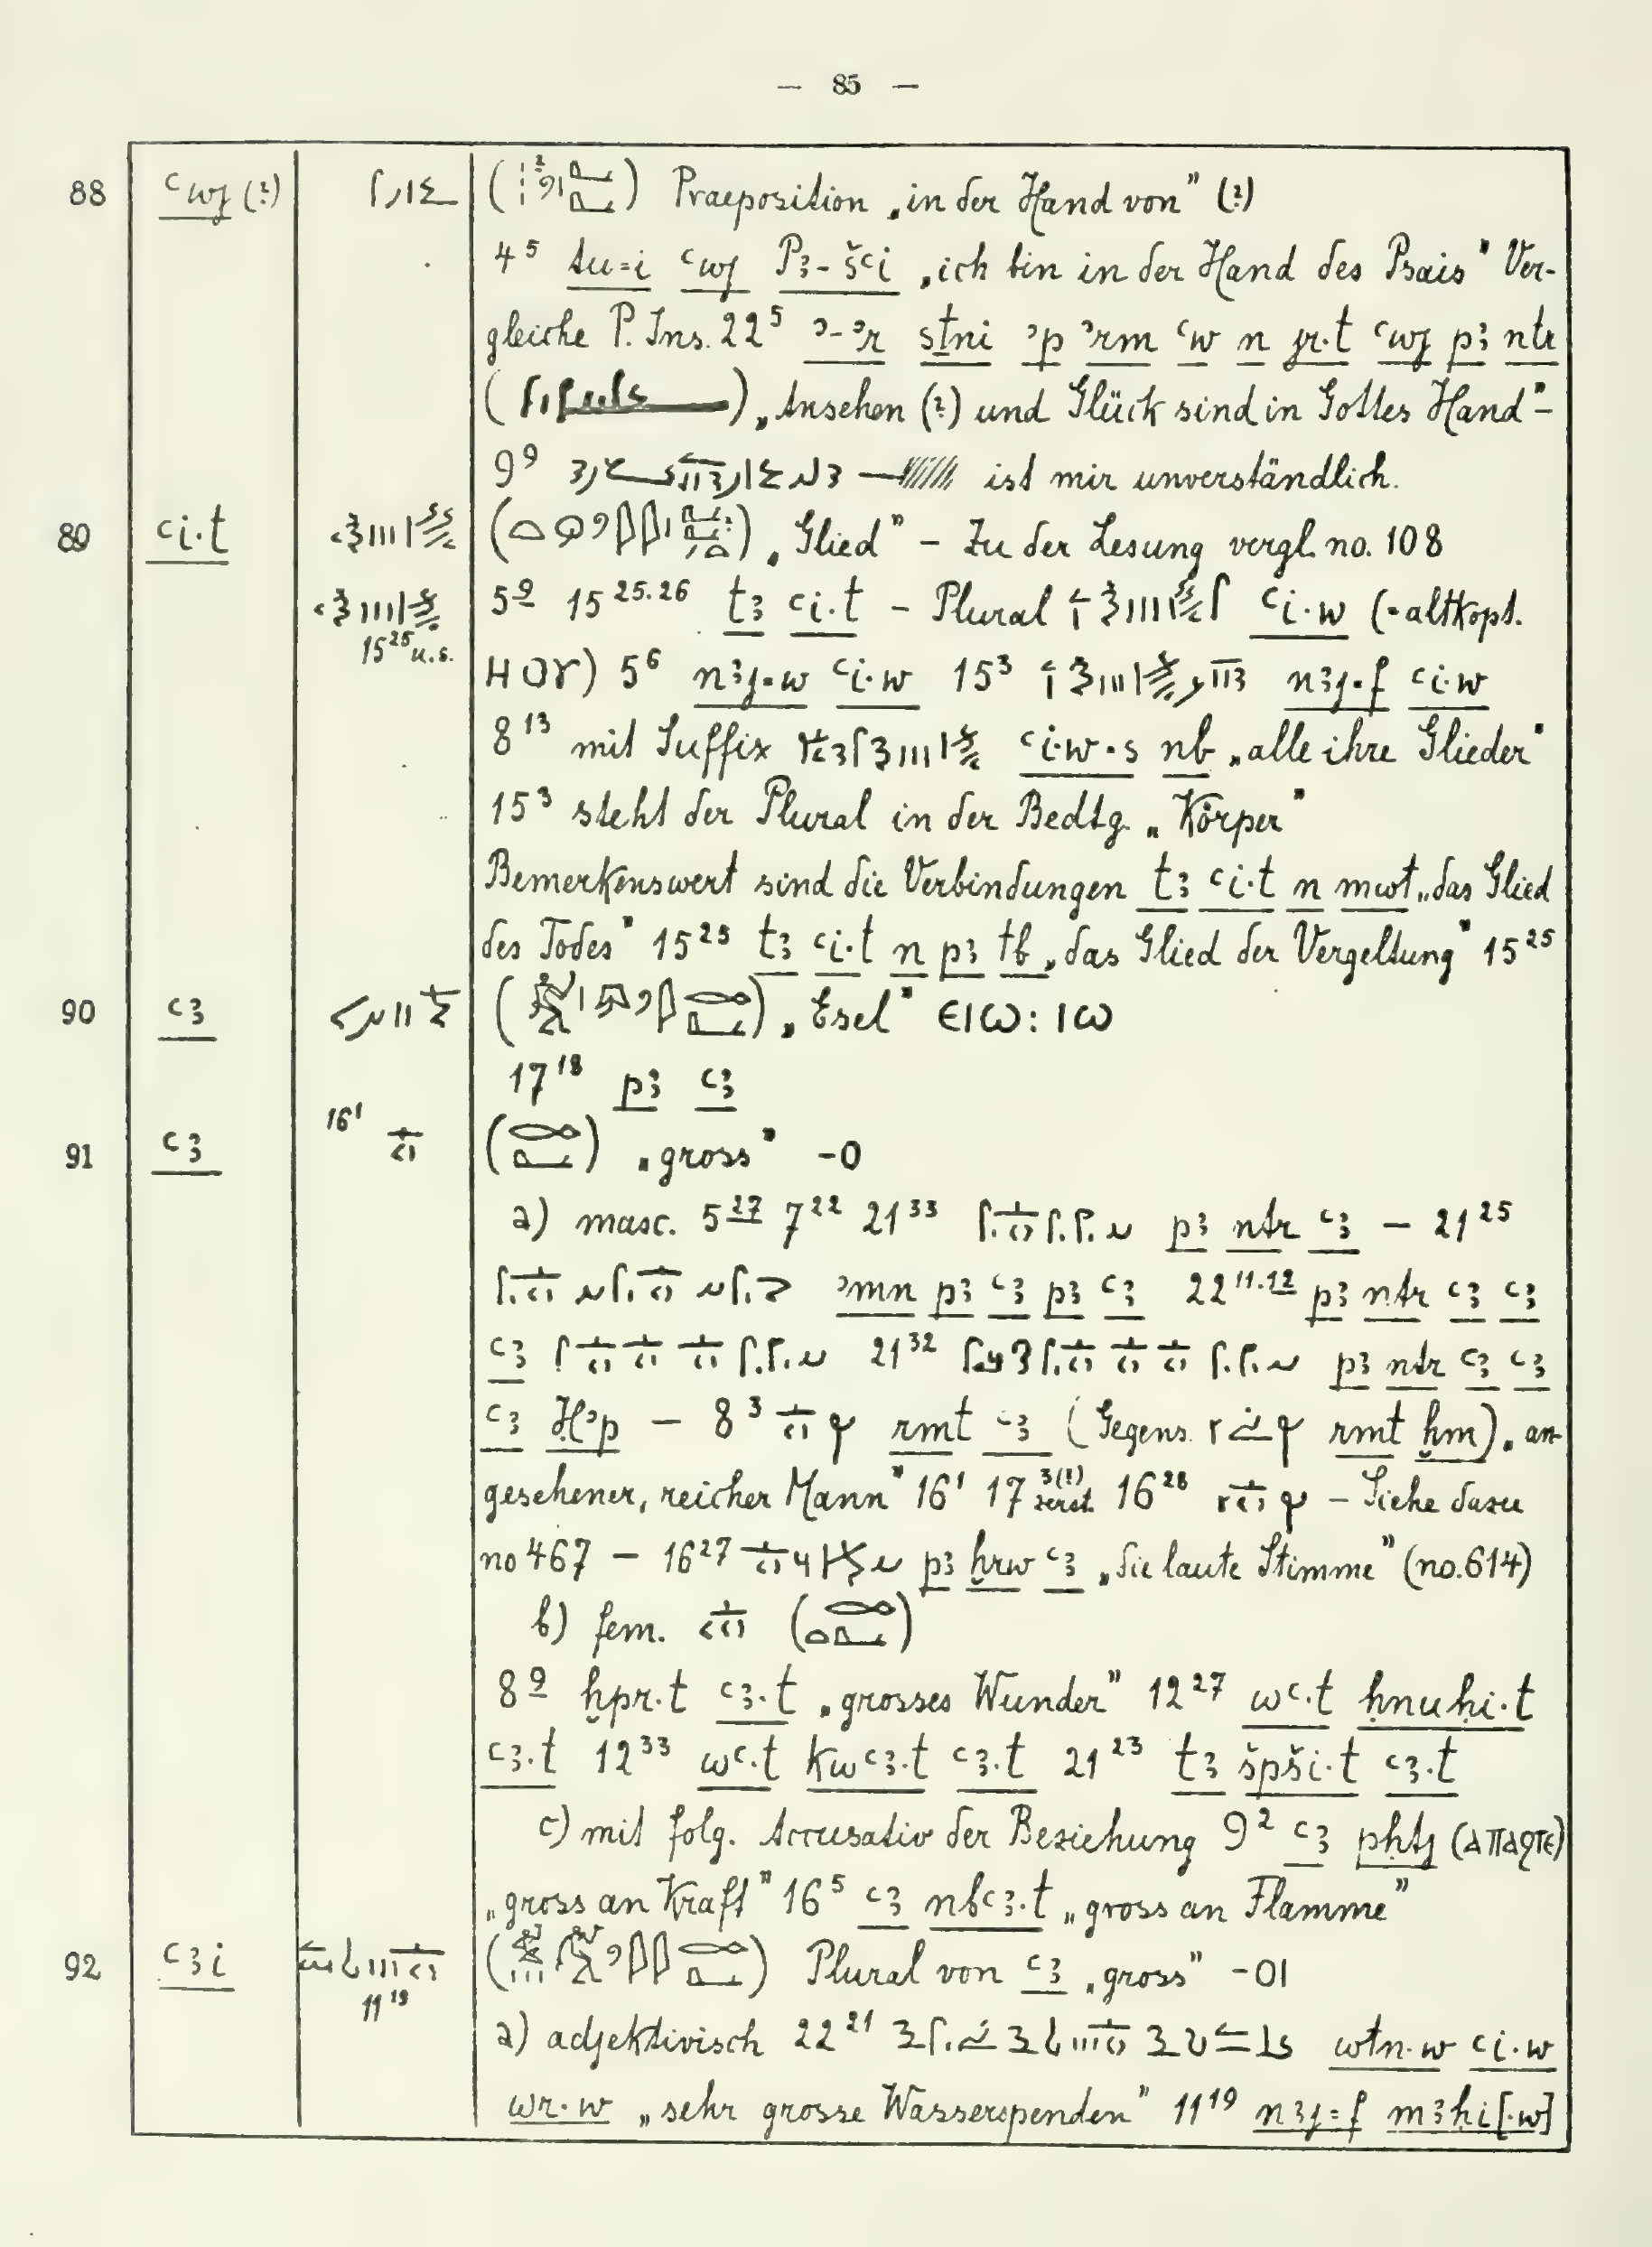 — 85 —
88 ꜥwj (?) ( ) Praeposition „in der Hand von” (?)
4⁵ tu=i ꜥwj Pꜣ-šꜥi „ich bin in der Hand des Psais” Ver-
gleiche P. Ins. 22⁵ ʾ-ʾr stni ʾp ʾrm ꜥw n jr·t ꜥwj pꜣ ntr
( ) „Ansehen (?) und Glück sind in Gottes Hand” –
9⁹ ist mir unverständlich.
89 ꜥi·t ( ) „Glied” – Zu der Lesung vergl. no. 108
5⁹ 15²⁵·²⁶ tꜣ ꜥi·t – Plural ꜥi·w (= altkopt.
15²⁵ u.s.
ⲎⲞⲨ) 5⁶ nꜣj=w ꜥi·w 15³ nꜣj=f ꜥi·w
8¹³ mit Suffix ꜥi·w=s nb „alle ihre Glieder”
15³ steht der Plural in der Bedtg. „Körper”
Bemerkenswert sind die Verbindungen tꜣ ꜥi·t n mwt „das Glied
des Todes” 15²⁵ tꜣ ꜥi·t n pꜣ tb „das Glied der Vergeltung” 15²⁵
90 ꜥꜣ ( ) „Esel” ⲉⲓⲱ: ⲓⲱ
17¹⁸ pꜣ ꜥꜣ
91 ꜥꜣ 16¹ ( ) „gross” -ⲟ
a) masc. 5²⁷ 7²² 21³³ pꜣ ntr ꜥꜣ – 21²⁵
ʾmn pꜣ ꜥꜣ pꜣ ꜥꜣ 22¹¹·¹² pꜣ ntr ꜥꜣ ꜥꜣ
ꜥꜣ 21³² pꜣ ntr ꜥꜣ ꜥꜣ
ꜥꜣ Ḥʾp – 8³ rmt ꜥꜣ (Gegens. rmt ḫm) „an-
gesehener, reicher Mann” 16¹ 17³⁽?⁾ zerst. 16²⁸ – Siehe dazu
no 467 – 16²⁷ pꜣ ḫrw ꜥꜣ „die laute Stimme” (no. 614)
b) fem. ( )
8⁹ ḫpr·t ꜥꜣ·t „grosses Wunder” 12²⁷ wꜥ·t ḥnuḥi·t
ꜥꜣ·t 12³³ wꜥ·t kwꜥꜣ·t ꜥꜣ·t 21²³ tꜣ špši·t ꜥꜣ·t
c) mit folg. Accusativ der Beziehung 9² ꜥꜣ pḥtj (ⲁⲡⲁϩⲧⲉ)
„gross an Kraft” 16⁵ ꜥꜣ nbꜥꜣ·t „gross an Flamme”
92 ꜥꜣi ( ) Plural von ꜥꜣ „gross” -ⲟⲓ
11¹⁹
a) adjektivisch 22²¹ wtn·w ꜥi·w
wr·w „sehr grosse Wasserspenden” 11¹⁹ nꜣj=f mꜣḥi[·w]